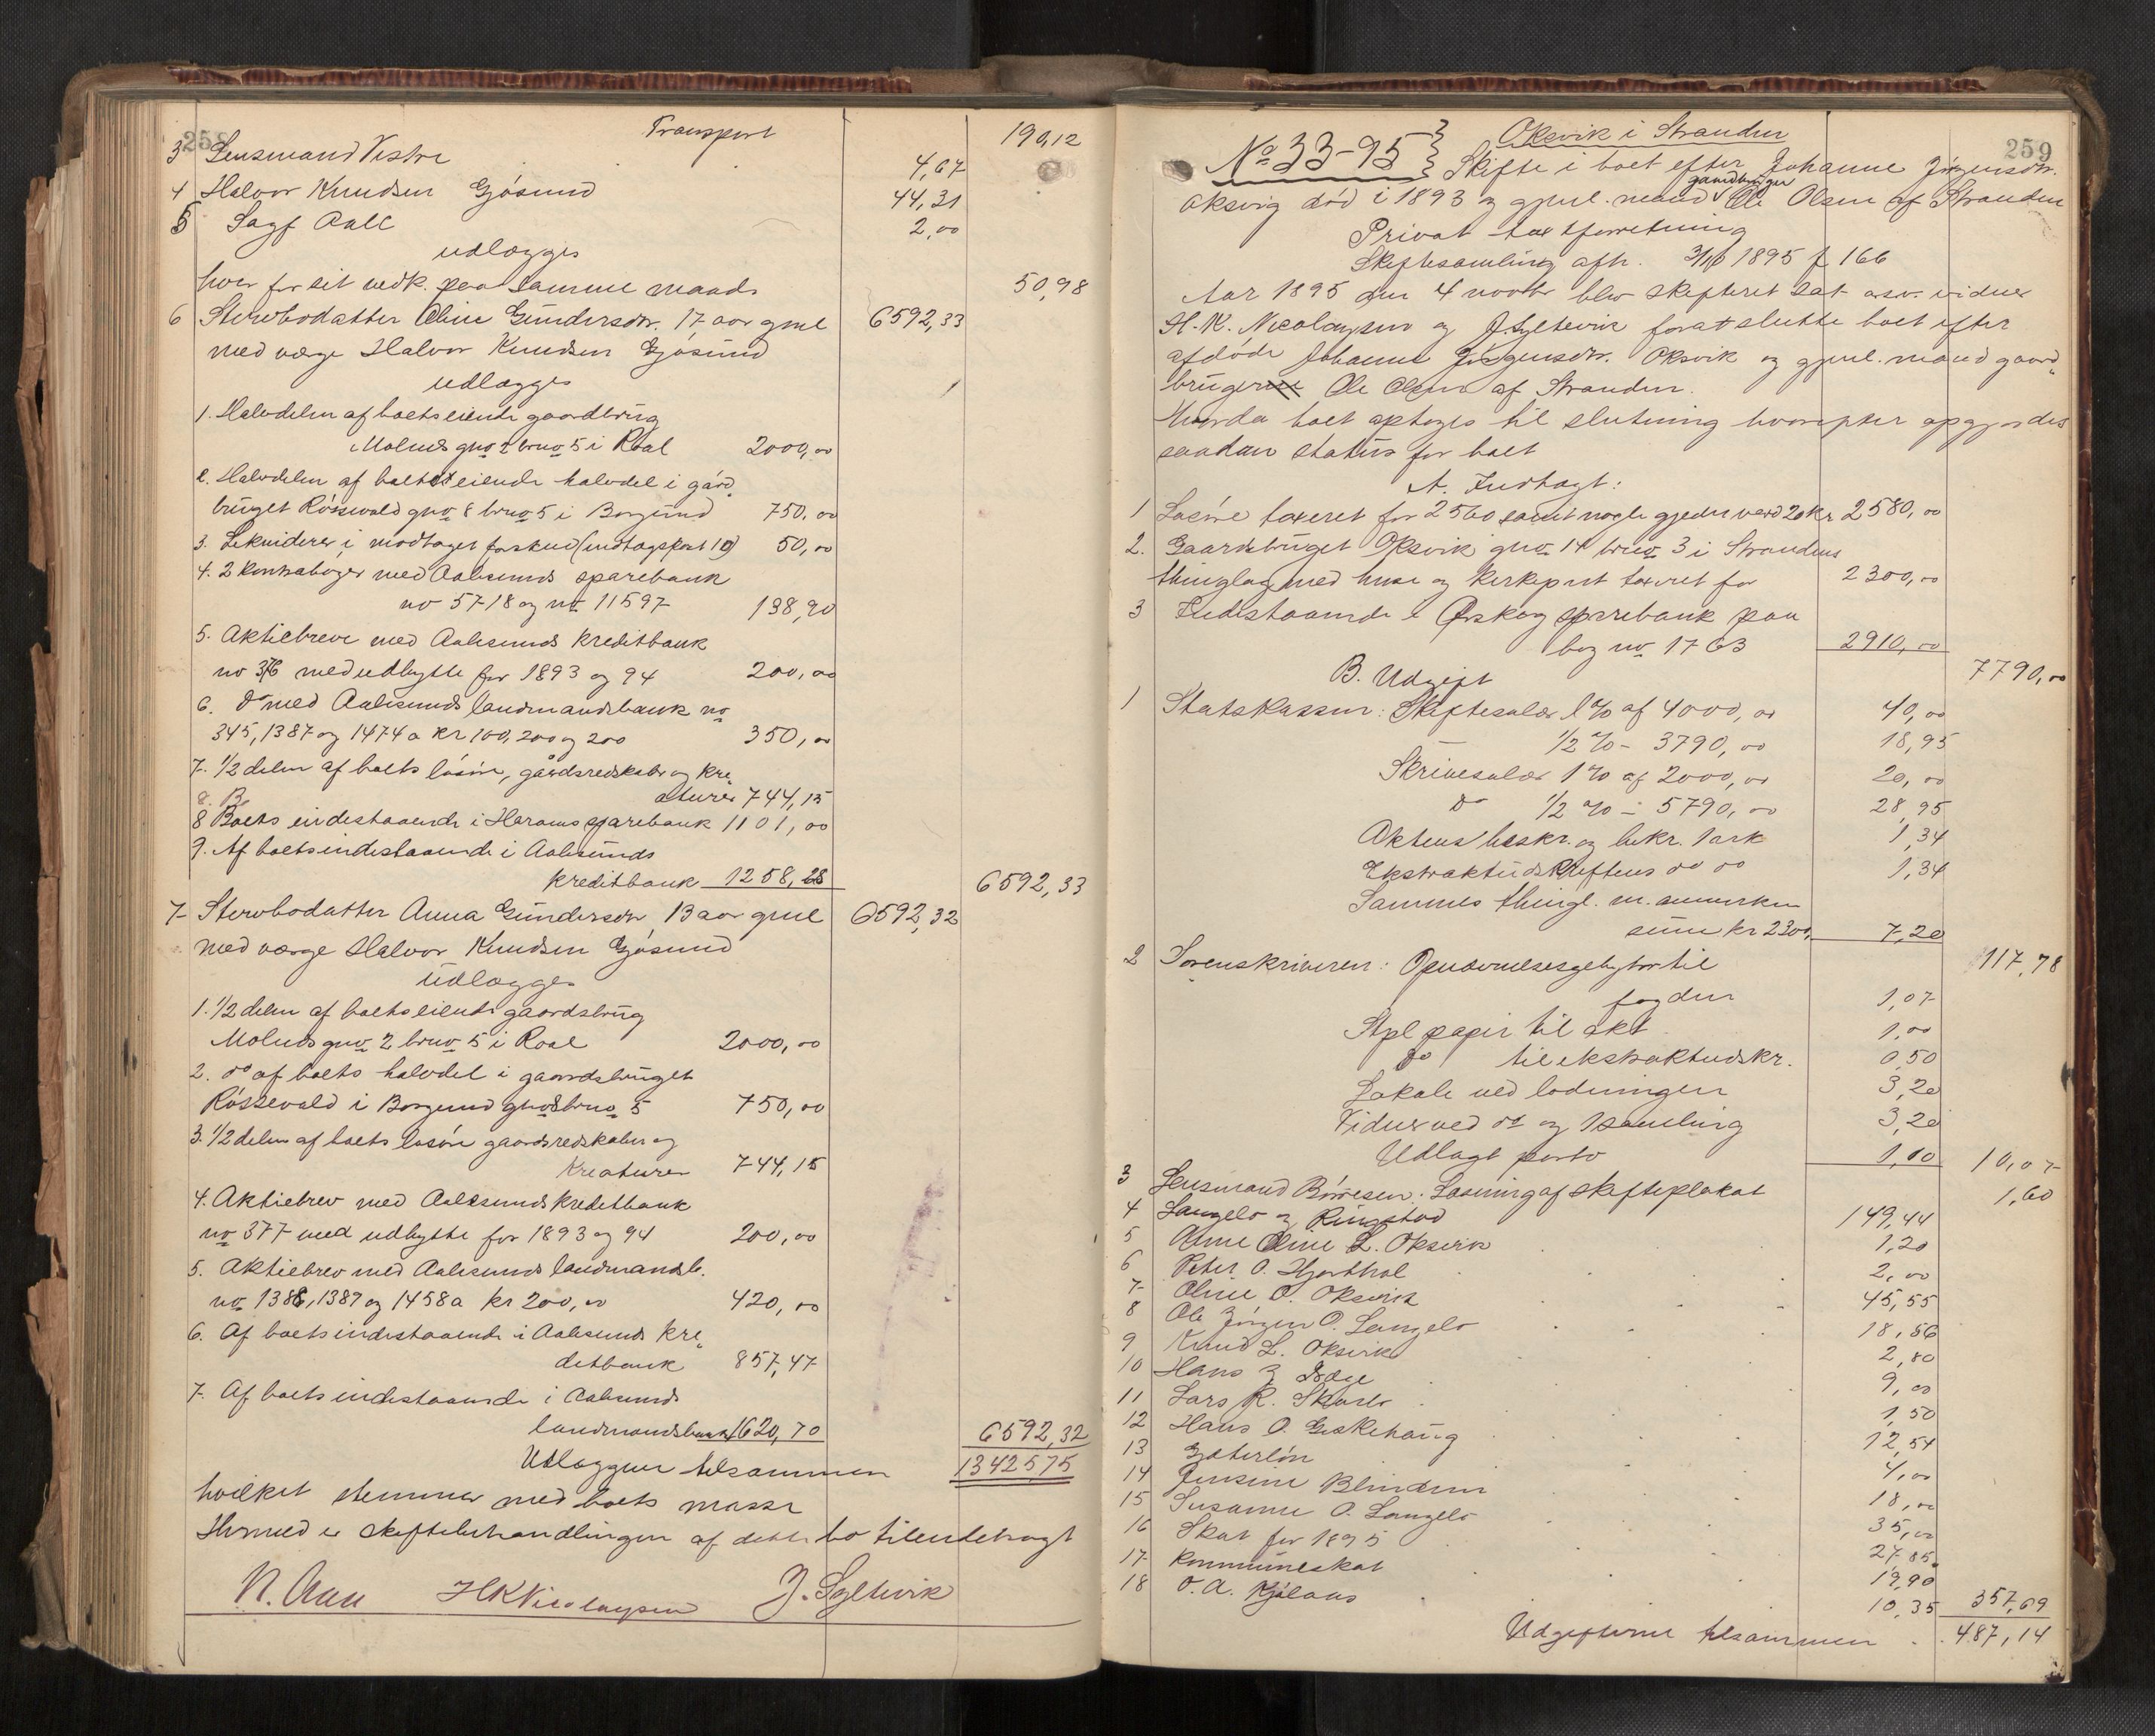 258
Transport 190,12
3 Lensmand Vestre 4,67
4 Halvor Knudsen Gjøsund 44,31
5 Sagf Aall 2,00
udlægges
hver for sit vedk. paa samme maade 50,98
6 Stervbodatter Oline Gundersdtr. 17 aar gml 6592,33
med værge Halvor Knudsen Gjøsund
udlægges
1. Halvdelen af boets eiende gaardbrug
Molnes gno 2 brno 5 i Roal 2000,00
2. Halvdelen af boets eiende halvdel i gård„
bruget Røssevold gno 8 brno 5 i Borgund 750,00
3. Lekviderer i modtaget forskud (indtægtspost 10) 50,00
4. 2 kontrabøger med Aalesunds sparebank
no 5718 og no 11597 198,90
5. Aktiebreve med Aalesunds kreditbank
no 376 med udbytte for 1893 og 94 200,00
6. do med Aalesunds landmandsbank no
345, 1387 og 1474 a kr 100, 200 og 200 350,00
7. 1/2 delen af boets løsøre, gårdsredskaber og kre„
8. B. aturer 744,15
8 Boets indestaaende i Harams sparebank 1101,00
9. Af boets indestaaende i Aalesunds
kreditbank 1258,28 6592,33
7 Stervbodatter Anna Gundersdtr 13 aar gml 6592,32
med værge Halvor Knudsen Gjøsund
udlægges
1. 1/2 delen af boets eiende gaardsbrug
Molnes gno 2 brno 5 i Roal 2000,00
2. do af boets halvdel i gaardsbruget
Røssevold i Borgund gno 8 brno 5 750,00
3. 1/2 delen af boets løsøre gaardsredskaber og
kreaturer 744,15
4. Aktiebrev med Aalesunds kreditbank
no 377 med udbytte for 1893 og 94 200,00
5. Aktiebrev med Aalesunds landmandsb.
no 1388, 1389 og 1458 a kr 200,00 420,00
6. Af boets indestaaende i Aalesunds kre„
ditbank 857,47
7. Af boets indestaaende i Aalesunds
landmandsbank 1620,70 6592,32
Udlæggene tilsammen 13425,75
hvilket stemmer med boets masse
Hermed er skiftebehandlingen af dette bo tilendebragt
N. Aall HKNicolaysen J. Syltevik
259
No 33-95 Oksvik i Stranden
Skifte i boet efter Johanne Jørgensdtr.
gaardbruger
Oksvig død i 1893 og gjenl. mand Ole Olsen af Stranden
Privat taxtforretning
Skiftesamling afh. 3/10 1895 f 166
Aar 1895 den 4 novbr blev skifteret sat osv. vidner
H. K. Nicolaysen og J Sylteviк for at slutte boet efter
afdøde Johanne Jørgensdtr. Oksvik og gjenl. mand gaard„
bruger Ole Olsen af Stranden.
boet optoges til slutning hvorefter opgjordes
saadan status for boet
A. Indtægt:
1 Løsøre taxeret for 2560 samt nogle gjeder værd 20 kr 2580,00
2. Gaardsbruget Oksvik gno 14 brno 3 i Strandens
thinglag med huse og taxeret for 2300,00
3 Indestaaende i Ørskog sparebank paa
bog no 1763 2910,00
7790,00
B. Udgift
1 Statskassen: Skiftesalær 1% af 4000,00 40,00
1/2 % - 3790,00 18,95
Skrivesalær 1% af 2000,00 20,00
do 1/2 % - 5790,00 28,95
Aktens beskr. og bekr. 1 ark 1,34
Ekstraktudskriftens do do 1,34
Sammes thingl. m. anmerken
sum kr 2300, 7,20
117,78
2 Sorenskriveren: Opnævnelsesgebyhr til
fogden 1,07
Stpl papir til akt 1,00
do til ekstraktudskr. 0,50
Lokale ved lodningen 3,20
Vidner ved do og 1 samling 3,20
Udlagt porto 1,10 10,07
3 Lensmand Børresen: Læsning af skifteplakat 1,60
4 Langelo og Ringstad 149,44
5 Ane Oline L. Oksvik 1,20
6 Peter O. Hjorthol 2,00
7 Oline O. Oksvik 45,55
8 Ole Jørgen O. Langelo 18,56
9 Knud L. Oksvik 2,80
10 Hans 9,00
11 Lars R. 1,50
12 Hans O. Geskehaug 12,54
13 4,00
14 Jensine Blindem 18,00
15 Susanne O. Langelo 35,00
16 Skat for 1895 27,85
17 Kommuneskat 19,90
18 O. A. Kjølaas 10,35 357,69
Udgifterne tilsammen 487,14